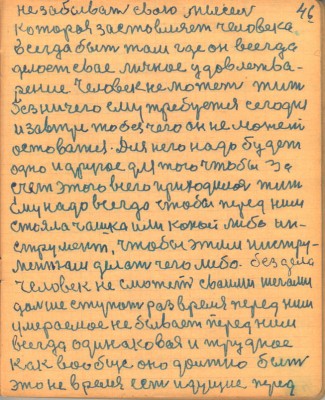 46
не забывает своей мысли
которая заставляет человека
всегда быт там где он всегда
делает свае личное удовлетва-
рение Человек не может жит
без ничего ему требуется сегодня
и завтра то без чего он не может
остоватся. Для него надо будет
одно и другое для того чтобы за
счет этого всего приходится жит
ему надо всегда чтобы перед ним
стояла чашка или какой либо ин-
струмент, чтобы этим инстру-
ментам делат чего либо. без дела
человек не сможет своими шагами
дальше ступат раз время перед ним
умераемое не бывает перед ним
всегда одинаковая и трудное
как вообще оно должно быт
это не время ест идущие перед